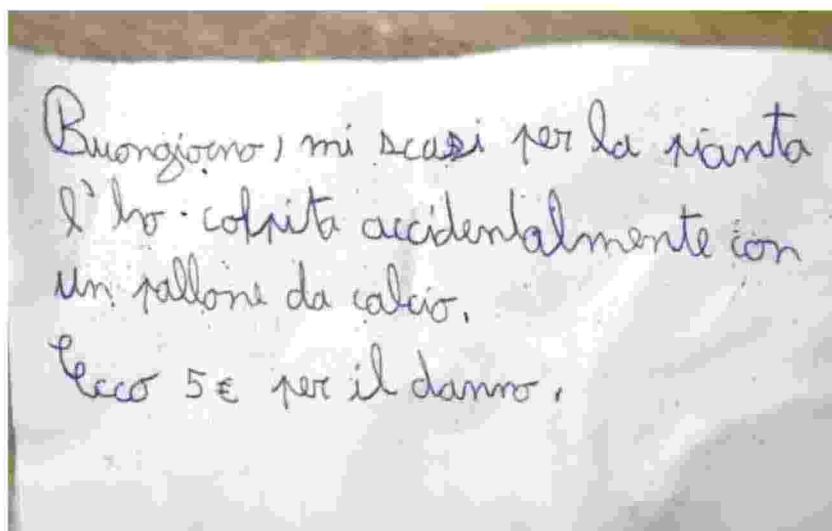 Buongiorno, mi scusi per la pianta
l'ho colpita accidentalmente con
un pallone da calcio.
Ecco 5€ per il danno.